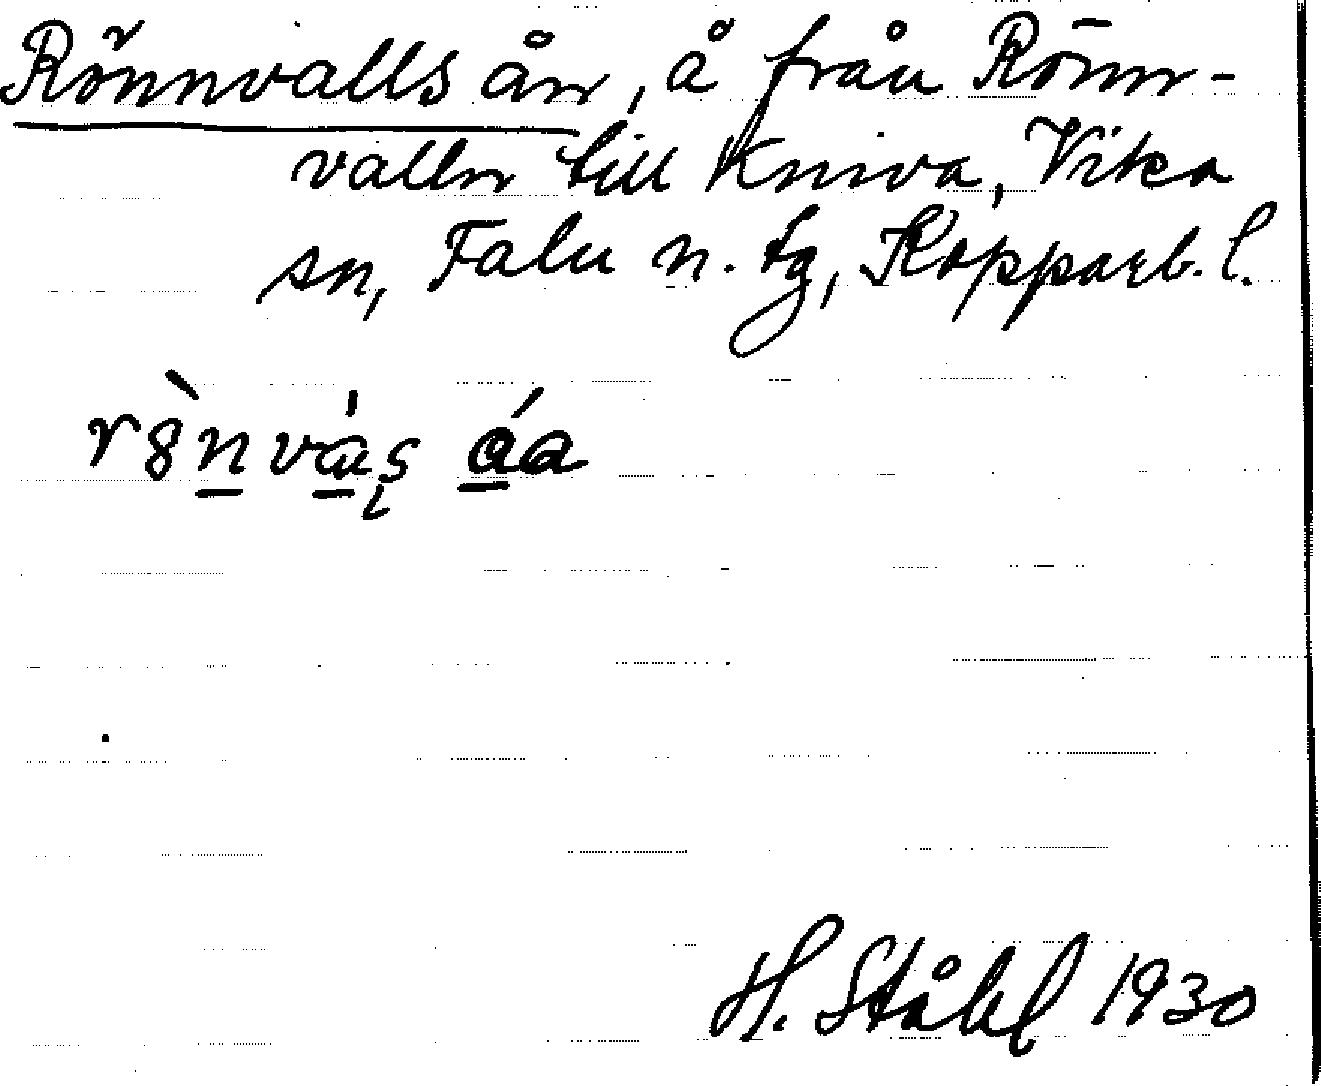 Rönnvallsån, å från Rönn-
valln till Kniva, Vika
sn, Falu n. tg, Kopparb. l.
H. Ståhl 1930